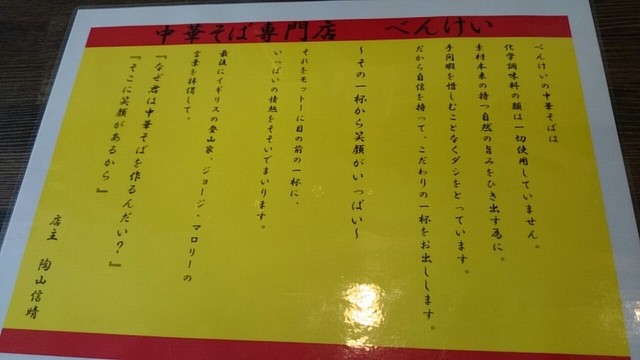 中華そば専門店　べんけい
べんけいの中華そばは
化学調味料の類は一切使用していません。
素材本来の持つ自然の旨みをひき出す為に。
手間暇を惜しむことなくダシをとっています。
だから自信を持って、こだわりの一杯をお出しします。
～その一杯から笑顔がいっぱい～
それをモットーに目の前の一杯に、
いっぱいの情熱をそそいでまいります。
最後にイギリスの登山家、ジョージ・マロリーの
言葉を拝借して。
『なぜ君は中華そばを作るんだい？』
『そこに笑顔があるから』
店主　陶山信晴